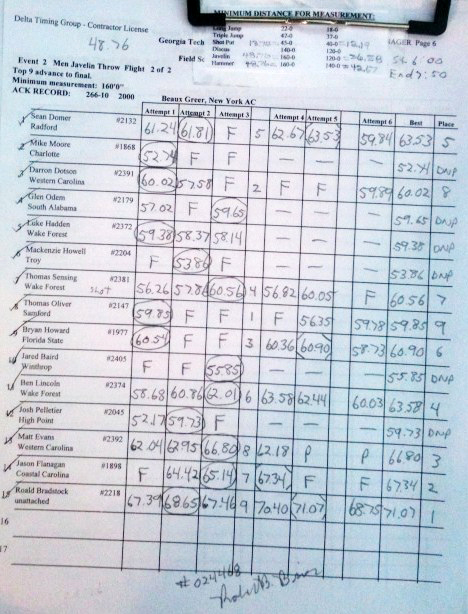 Delta Timing Group - Contractor License
MINIMUM DISTANCE FOR MEASUREMENT:
48.76
Georgia Tech
Long Jump 22-0 18-0
Triple Jump 47-0 37-0
Shot Put 45-0 40-0
Discus 140-0 120-0
Javelin 160-0 120-0
Hammer 160-0 140-0
AGER Page 6
Field Sc
Ends: 50
Event 2 Men Javelin Throw Flight 2 of 2
Top 9 advance to final.
Minimum measurement: 160'0"
ACK RECORD: 266-10 2000 Beaux Greer, New York AC
Attempt 1 Attempt 2 Attempt 3 Attempt 4 Attempt 5 Attempt 6 Best Place
1 Sean Domer #2132 61.24 61.81 F 5 62.67 63.53 59.84 63.53 5
Radford
2 Mike Moore #1868 52.74 F F — — — 52.74 DNP
Charlotte
3 Darron Dotson #2391 60.02 57.58 F 2 F F 59.89 60.02 8
Western Carolina
4 Glen Odem #2179 57.02 F 59.65 — — — 59.65 DNP
South Alabama
5 Luke Hadden #2372 59.38 58.37 58.14 — — — 59.38 DNP
Wake Forest
6 Mackenzie Howell #2204 F 53.86 F — — — 53.86 DNP
Troy
7 Thomas Sensing #2381 56.26 57.86 60.56 4 56.82 60.05 F 60.56 7
Wake Forest
8 Thomas Oliver #2147 59.85 F F 1 F 56.35 59.78 59.85 9
Samford
9 Bryan Howard #1977 60.54 F F 3 60.36 60.90 58.73 60.90 6
Florida State
10 Jared Baird #2405 F F 55.85 — — — 55.85 DNP
Winthrop
11 Ben Lincoln #2374 58.68 60.86 62.01 6 63.58 62.44 60.03 63.58 4
Wake Forest
12 Josh Pelletier #2045 52.17 59.73 F — — — 59.73 DNP
High Point
13 Matt Evans #2392 62.04 62.95 66.80 8 62.18 P P 66.80 3
Western Carolina
14 Jason Flanagan #1898 F 64.42 65.14 7 67.34 F F 67.34 2
Coastal Carolina
15 Roald Bradstock #2218 67.39 68.65 67.46 9 70.40 71.07 68.75 71.07 1
unattached
16
17
# 024468